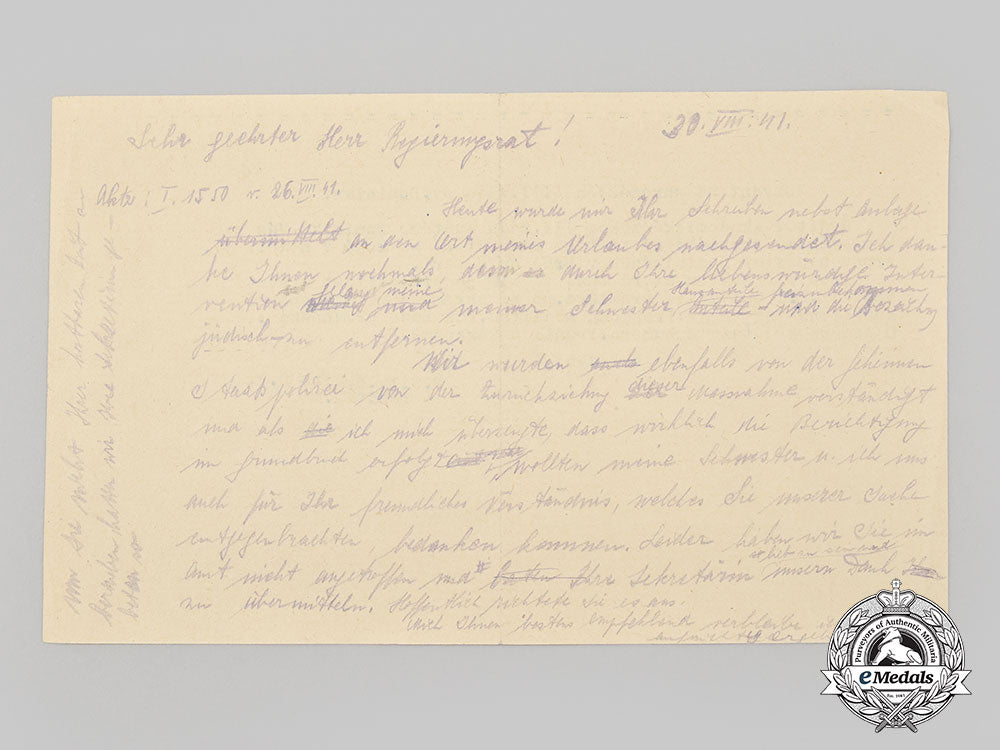 30. VIII. 41.
Sehr geehrter Herr Regierungsrat!
Akte: I. 1550 v. 26. VIII. 41.
Heute wurde mir Ihr Schreiben nebst Anlage
übermittelt an den Ort meines Urlaubes nachgesendet. Ich dan-
ke Ihnen nochmals, dass es durch Ihre liebenswürdige Inter-
vention gelang meine und meiner Schwester die Bezeichng
jüdisch zu entfernen.
Wir wurden auch ebenfalls von der geheimen
Staatspolizei von der Zurückziehung dieser Massnahme verständigt
und als die ich mich überzeugte, dass wirklich die Berichtigung
im Grundbuch erfolgt, wollten meine Schwester u. ich uns
auch für Ihr freundliches Verständnis, welches Sie unserer Sache
entgegenbrachten, bedanken kommen. Leider haben wir Sie im
Amt nicht angetroffen und baten Ihre Sekretärin unsern Dank Ihnen
zu übermitteln. Hoffentlich richtete sie es aus.
Mich Ihnen bestens empfehlend verbleibe ich
aufrichtig ergeb
um Sie nicht Ihrer kostbaren Zeit zu
berauben hatten wir Ihre Sekretärin ge-
beten
Purveyors of Authentic Militaria
eMedals